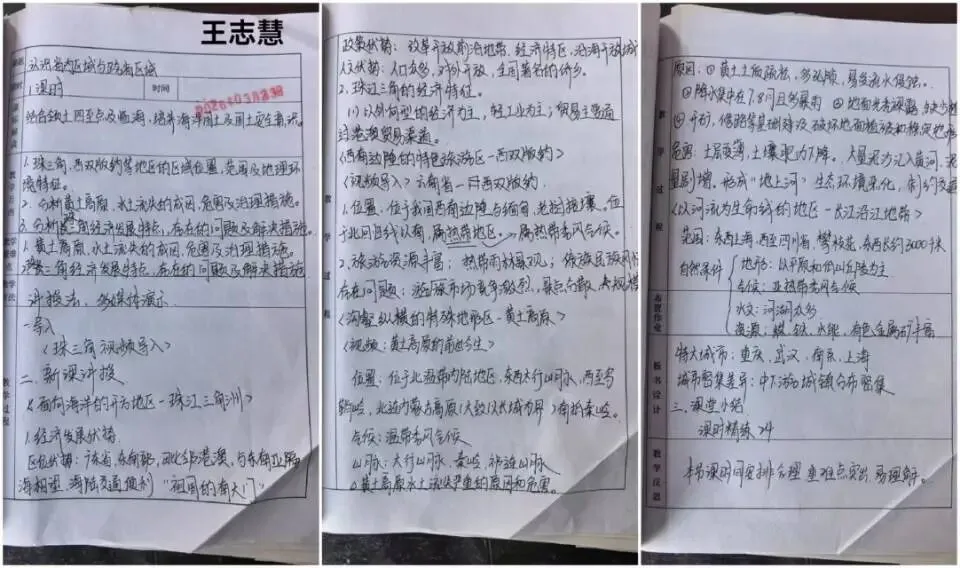 王志慧
认识省内区域与跨省区域
1课时
时间
结合领土四至点及临海,培养海洋国土及国土安全意识。
1. 珠三角、西双版纳等地区的区域位置、范围及地理环
境特征。
2. 分析黄土高原水土流失的成因、危害及治理措施。
3. 分析珠三角经济发展特点,存在的问题及解决措施。
1. 黄土高原水土流失的成因、危害及治理措施。
三角经济发展特点,存在的问题及解决措施
讲授法,多媒体演示
一导入
<珠三角视频导入>
二、新课讲授
<面向海洋的开放地区-珠江三角洲>
1.经济发展优势
区位优势:广东省,东南部,毗邻港澳,与东南亚隔
海相望,海陆交通便利 "祖国的南大门"
教学过程
政策优势:改革开放前沿地带、经济特区,沿海开放城
人文优势:人口众多,对外开放,全国著名的侨乡。
2. 珠江三角的经济特征。
(1)以外向型的经济为主,轻工业为主;贸易主要通
过港澳贸易渠道。
<西南边陲的特色旅游区-西双版纳>
<视频导入>云南省-西双版纳
1.位置:位于我国西南边陲与缅甸,老挝接壤。位
于北回归线以南,属热带地区。属热带季风气候。
2.旅游资源丰富;热带雨林景观;傣族民族风
存在问题:旅游市场竞争激烈,景点分散,
<沟壑纵横的特殊地形区-黄土高原>
<视频:黄土高原的前世今生>
位置:位于北温带内陆地区,东西太行山脉,西至乌
鞘岭,北连内蒙古高原(大致以长城为界)南抵秦岭。
气候:温带季风气候
山脉:太行山脉、秦岭,祁连山脉
黄土高原水土流失严重的原因和危害。
教学过程
原因:①黄土土质疏松,多孔隙,易受流水侵蚀。
②降水集中在7.8月且多暴雨 ③地面光秃裸露,缺少植
④开矿,修路等基础建设破坏地面植被和稳定地
危害:土层贫薄,土壤肥力下降。大量泥沙汇入黄河,
量剧增,形成"地上河"生态环境恶化,制约
<以河流为生命线的地区-长江沿江地带>
范围:东西上海,西至四川省攀枝花,东西长约3000千米
自然条件
地形:以平原和低山丘陵为主
气候:亚热带季风气候
水文:河湖众多
资源:煤、铁、水能、有色金属矿丰富
特大城市:重庆、武汉、南京、上海
城市密集差异:中下游城镇分布密集
三、课堂小结
课时精练
本节课时间安排合理,重难点突出,易理解。
教学过程
布置作业
板书设计
教学反思